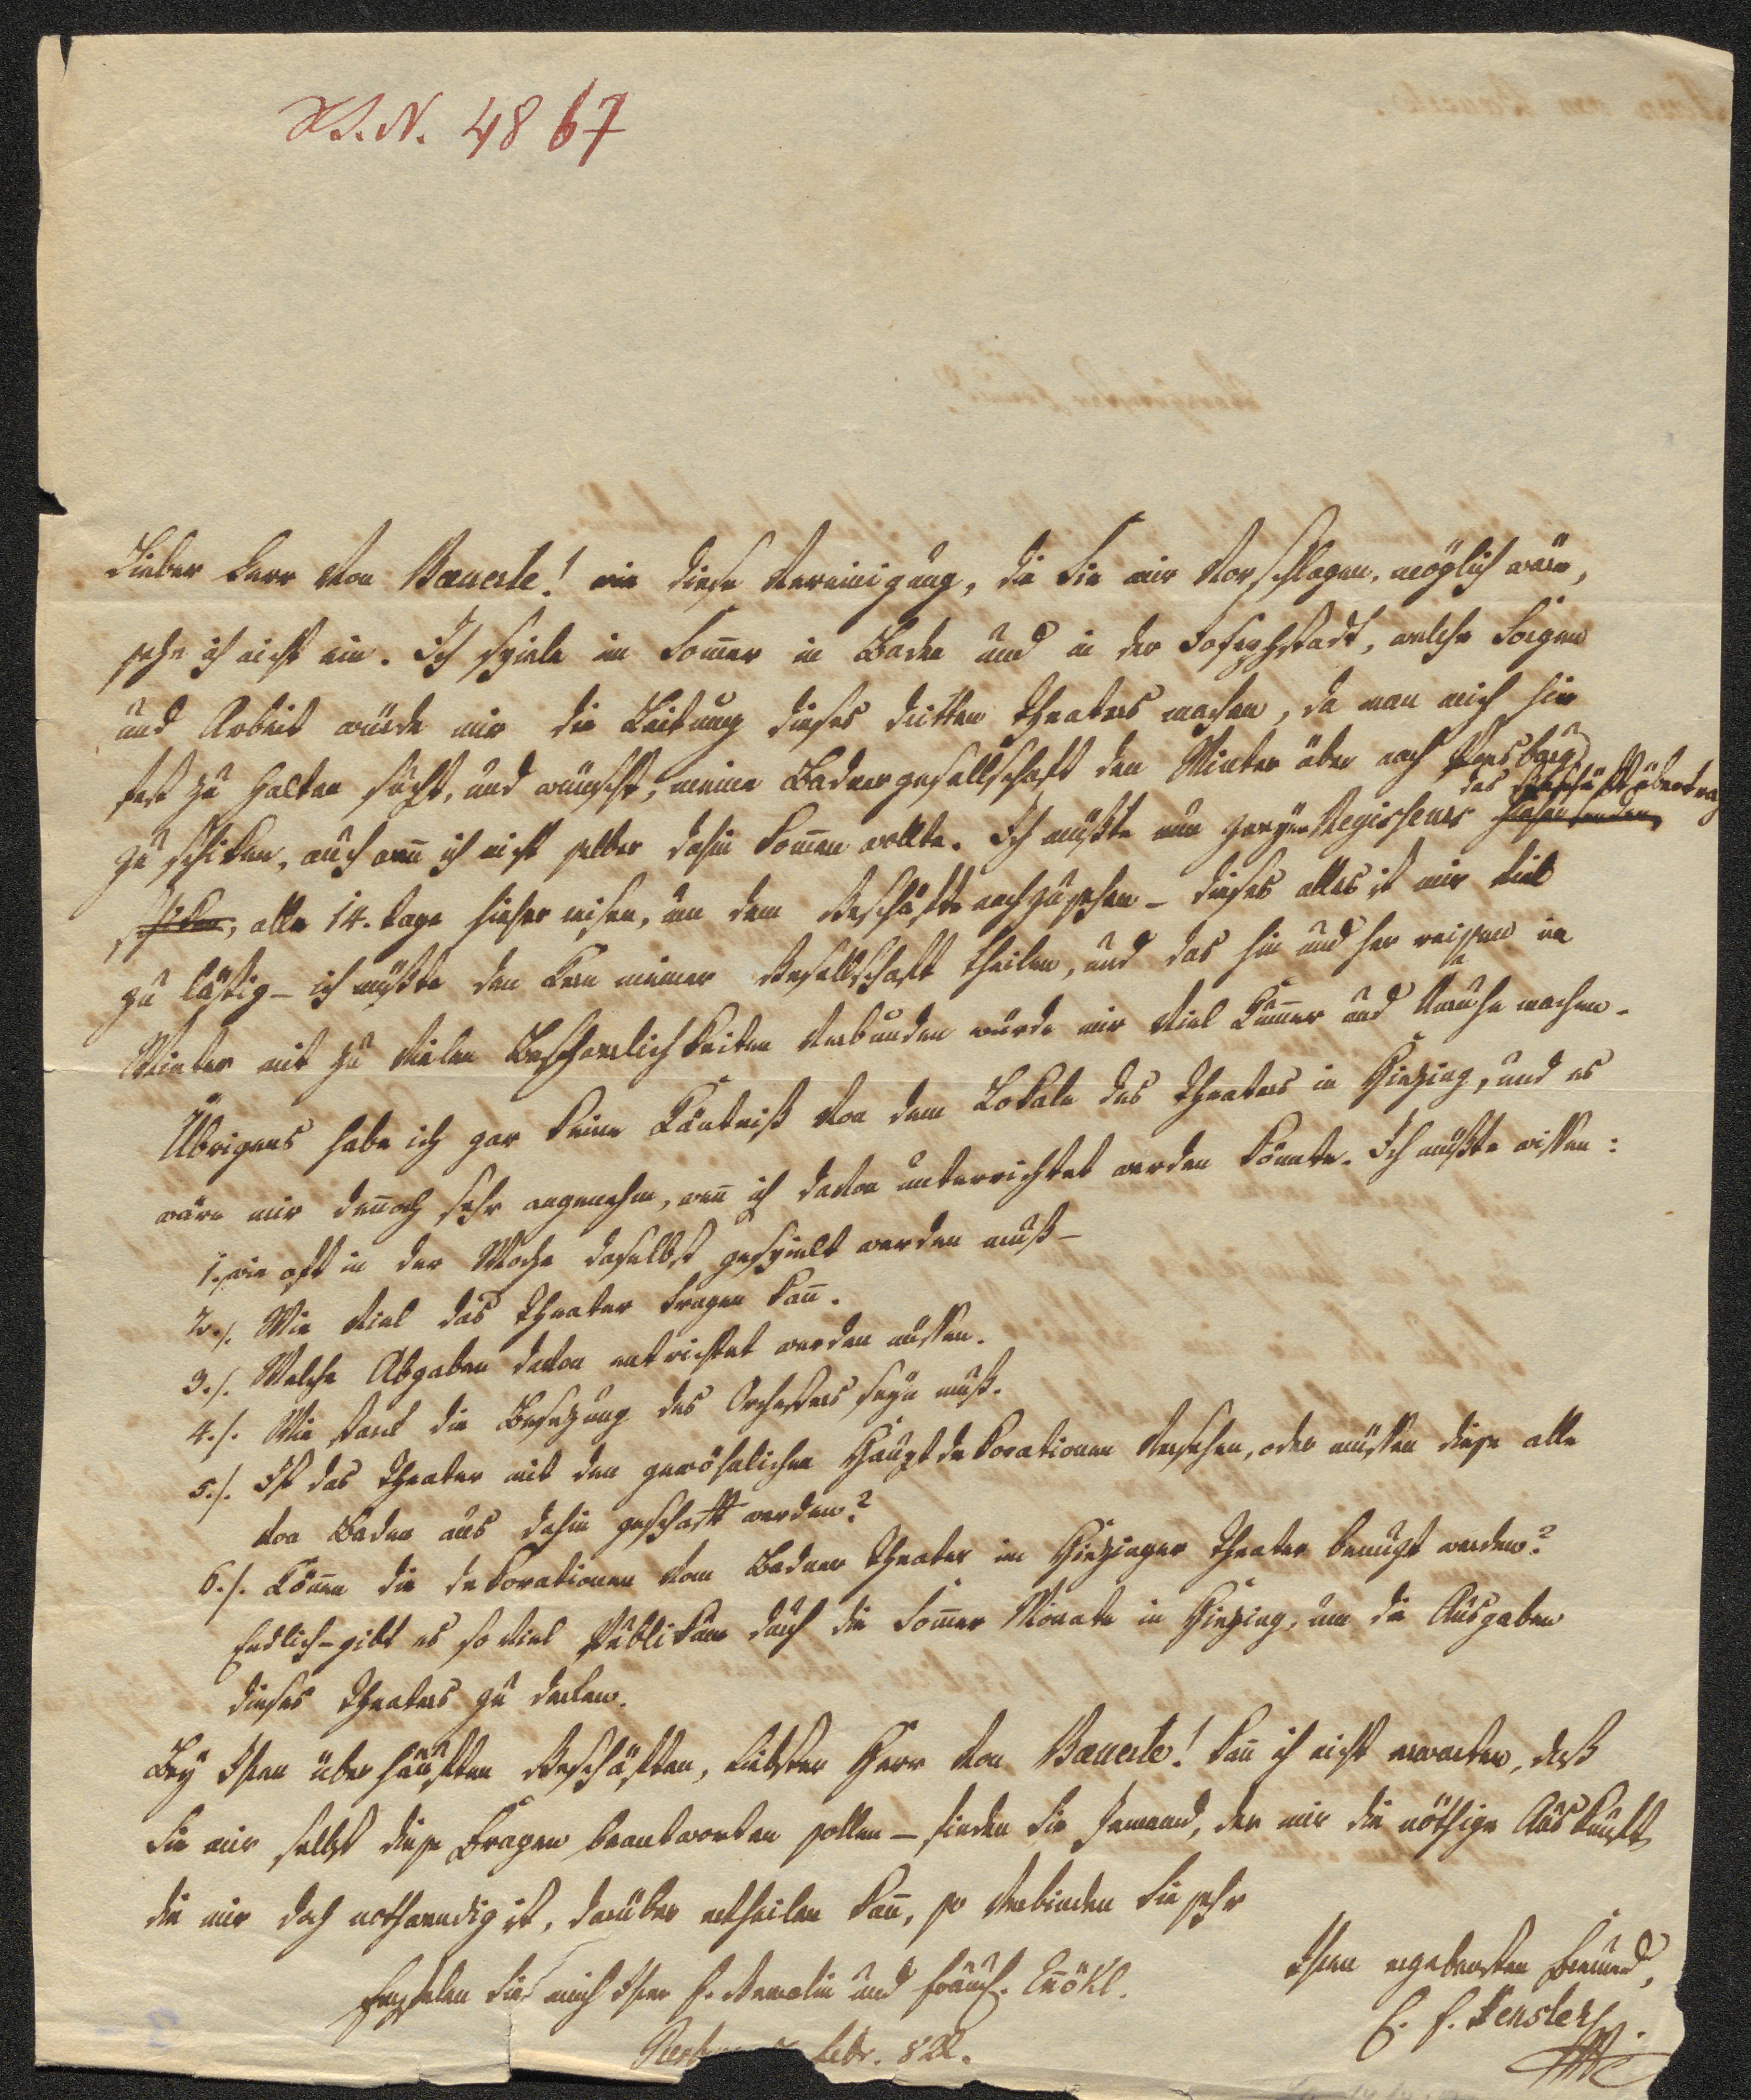 I. N. 4867
Lieber Herr von Bäuerle! wie diese Vereinigung, die Sie mir vorschlagen, möglich wäre,
sehe ich nicht ein. Ich spiele im Som̅er in Baden und in der Josephstadt, welche Sorgen
und Arbeit würde mir die Leitung dieses dritten Theaters machen, da man mich hier
fest zu halten sucht, und wünscht, meine Badnergesellschaft den Winter über nach Presburg
zu schiken, auch wen̅ ich nicht selber dahin kom̅en wollte. Ich müßte nun Regisseurs hieher senden,
das Geschäft übertrag
schiken, alle 14. Tage hieher reisen, um dem Geschäfte nachzusehen – dieses alles ist mir viel
zu lästig – ich müßte den Kern meiner Gesellschaft theilen, und das hin und her reisen im
Winter mit zu vielen Beschwerlichkeiten verbunden würde mir viel Kum̅er und Unruhe machen.
Übrigens habe ich gar keine Käntniß von dem Lokale des Theaters in Hietzing, und es
wäre mir den̅och sehr angenehm, wen̅ ich davon unterrichtet werden könnte. Ich müßte wissen:
1./. wie oft in der Woche daselbst gespielt werden muß –
2./. Wie viel das Theater tragen kan̅.
3./. Welche Abgaben davon entrichtet werden müssen.
4./. Wie stark die Besetzung des Orchesters seyn muß.
5./. Ist das Theater mit den gewöhnlichen Hauptdekorationen versehen, oder müssen diese alle
von Baden aus dahin geschafft werden?
6./. Kön̅en die Dekorationen vom Badner Theater im Hietzinger Theater benützt werden?
Endlich – gibt es so viel Publikum durch die Som̅er Monate in Hietzing, um die Ausgaben
dieses Theaters zu decken.
Bey Ihren überhäuften Geschäften, liebster Herr von Bäuerle! kan̅ ich nicht erwarten, daß
Sie mir selbst diese Fragen beantworten sollen – finden Sie Jemand, der mir die nöthige Auskunft,
die mir doch nothwendig ist, darüber ertheilen kan̅, so verbinden Sie sehr
Ihren ergebensten Freund,
Empfehlen Sie mich Ihrer F. Gemalin und Fräul. En̅ökl.
C. F. Hensler
Febr. 822.